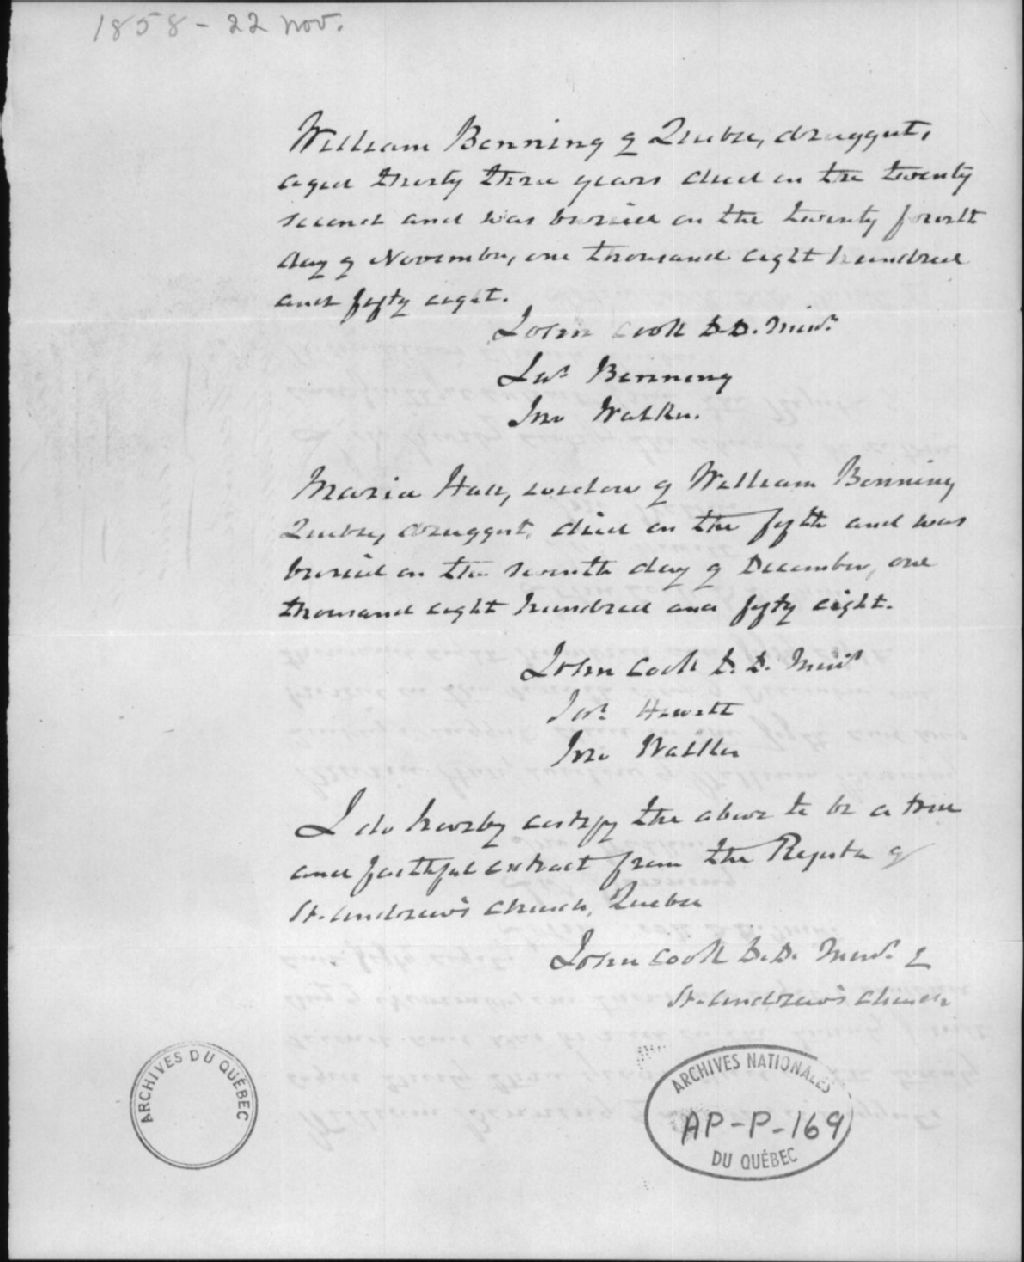 1858 - 22 nov.
William Benning of Quebec, druggist,
aged thirty three years died on the twenty
second and was buried on the twenty fourth
day of November, one thousand eight hundred
and fifty eight.
John Cook D.D. Minr.
Jas. Benning
Jno Walker.
Maria Hall, widow of William Benning
Quebec, druggist, died on the fifth and was
buried on the seventh day of December, one
thousand eight hundred and fifty eight.
John Cook D.D. Minr
Jas. Hewitt
Jno Walker
I do hereby certify the above to be a true
and faithful extract from the Register of
St. Andrew's Church, Quebec
John Cook D.D. Minr. of
St. Andrew's Church
ARCHIVES DU QUÉBEC
ARCHIVES NATIONALES
AP-P-169
DU QUÉBEC